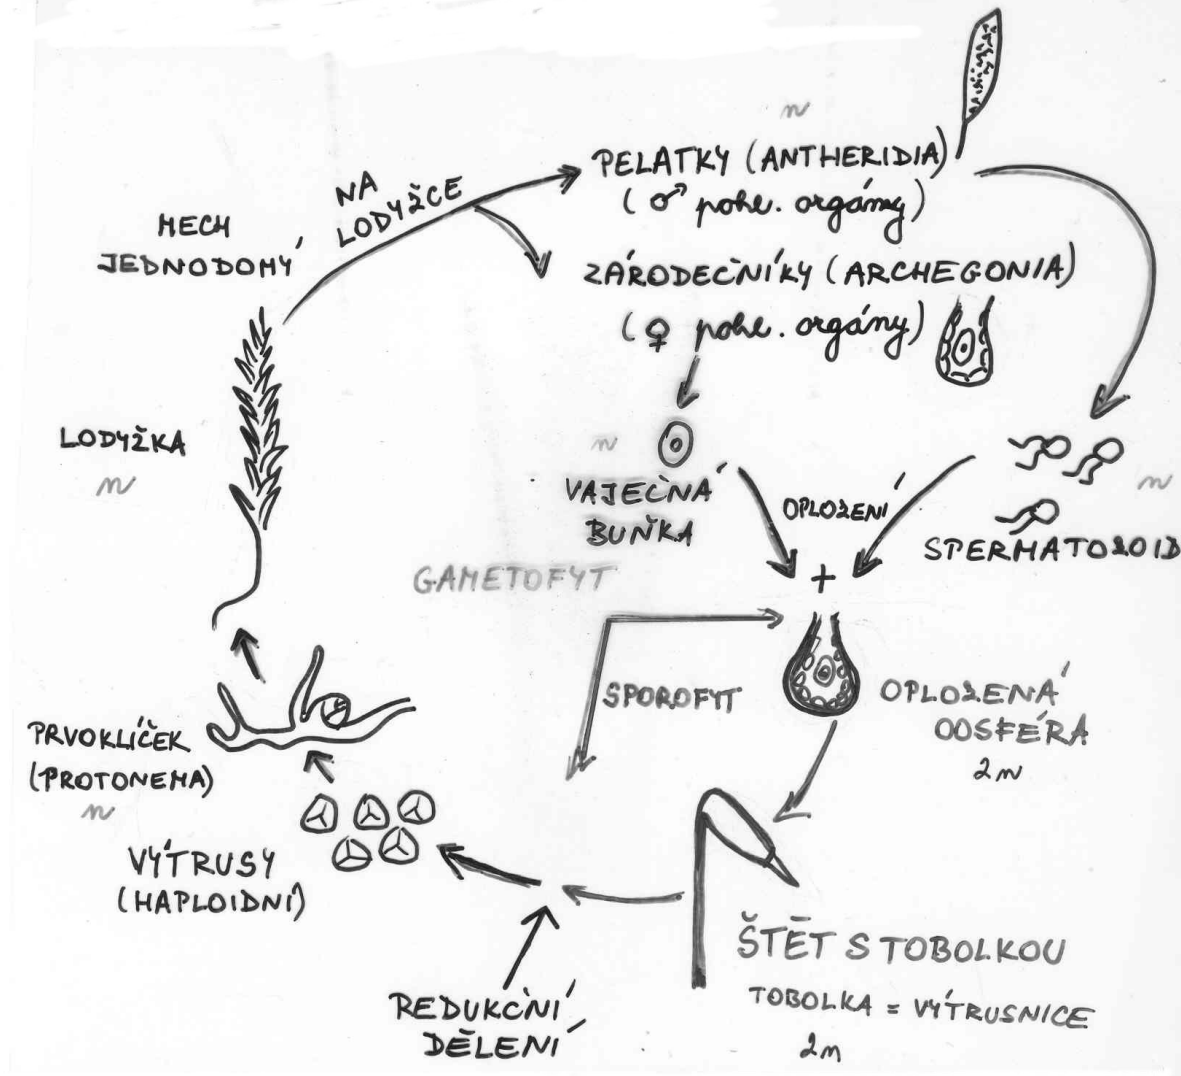 n
PELATKY (ANTHERIDIA)
(♂ pohl. orgány)
NA
LODYŽCE
MECH
JEDNODOMÝ
ZÁRODEČNÍKY (ARCHEGONIA)
(♀ pohl. orgány)
LODYŽKA
n
n
VAJEČNÁ
BUŇKA
OPLOZENÍ
n
SPERMATOZOID
+
GAMETOFYT
SPOROFYT
OPLOZENÁ
OOSFÉRA
2n
PRVOKLÍČEK
(PROTONEMA)
n
VÝTRUSY
(HAPLOIDNÍ)
ŠTĚT S TOBOLKOU
TOBOLKA = VÝTRUSNICE
2n
REDUKČNÍ
DĚLENÍ